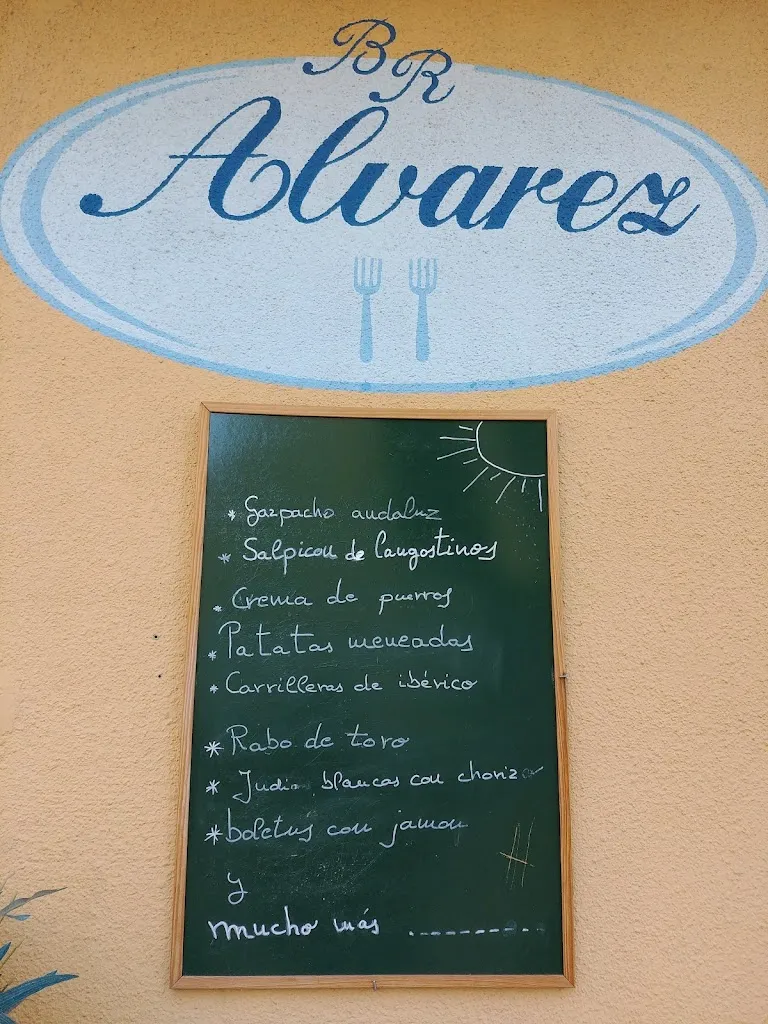 BR
Alvarez
* Gazpacho andaluz
* Salpicon de langostinos
* Crema de puerros
* Patatas meneadas
* Carrilleras de ibérico
* Rabo de toro
* Judias blancas con chorizo
* boletus con jamon
y
mucho más ..........